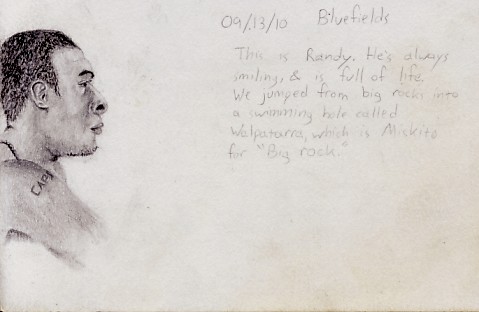 09/13/10 Bluefields
This is Randy. He's always
smiling, & is full of life.
We jumped from big rocks into
a swimming hole called
Walpatarra, which is Miskito
for "Big rock."